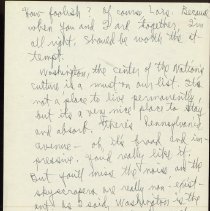 "How foolish? Of course Lara. Because
when you and I are together, I'm
all right. Should be worth the at-
tempt.
Washington, the center of the Nation's
culture is a must on our list. It's
not a place to live permanently,
but it's a very nice place to stay
and absorb. There's Pennsylvania
avenue – oh its broad and im-
pressive. You'd really like it.
But you'll miss the noise as the
skyscrapers are really non-exist-
ent. As I said, Washington is the